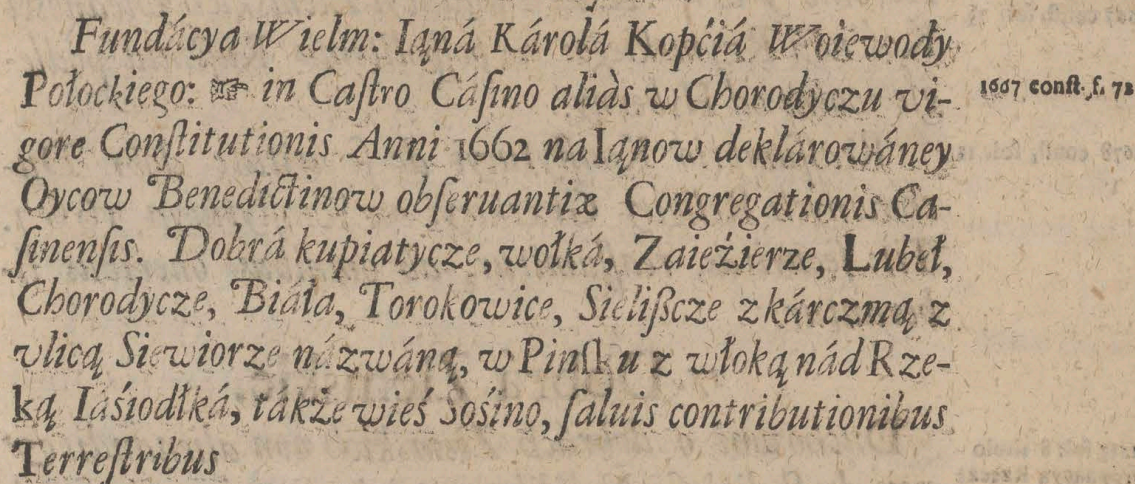 Fundácya Wielm: Iąná Károlá Kopćiá Woiewody
Połockiego: ☞ in Caſtro Cáſino aliàs w Chorodyczu vi-
1667 conſt. f. 72
gore Conſtitutionis Anni 1662 na Iąnow deklárowáney
Oycow Benedictinow obſeruantiæ Congregationis Ca-
ſinenſis. Dobrá kupiatycze, wołká, Zaieźierze, Lubeł,
Chorodycze, Biáła, Torokowice, Sielißcze z kárczmą z
vlicą Siewiorze názwáną, w Pinſku z włoką nád Rze-
ką Iáśiodłká, tákże wieś Sośino, ſaluis contributionibus
Terreſtribus